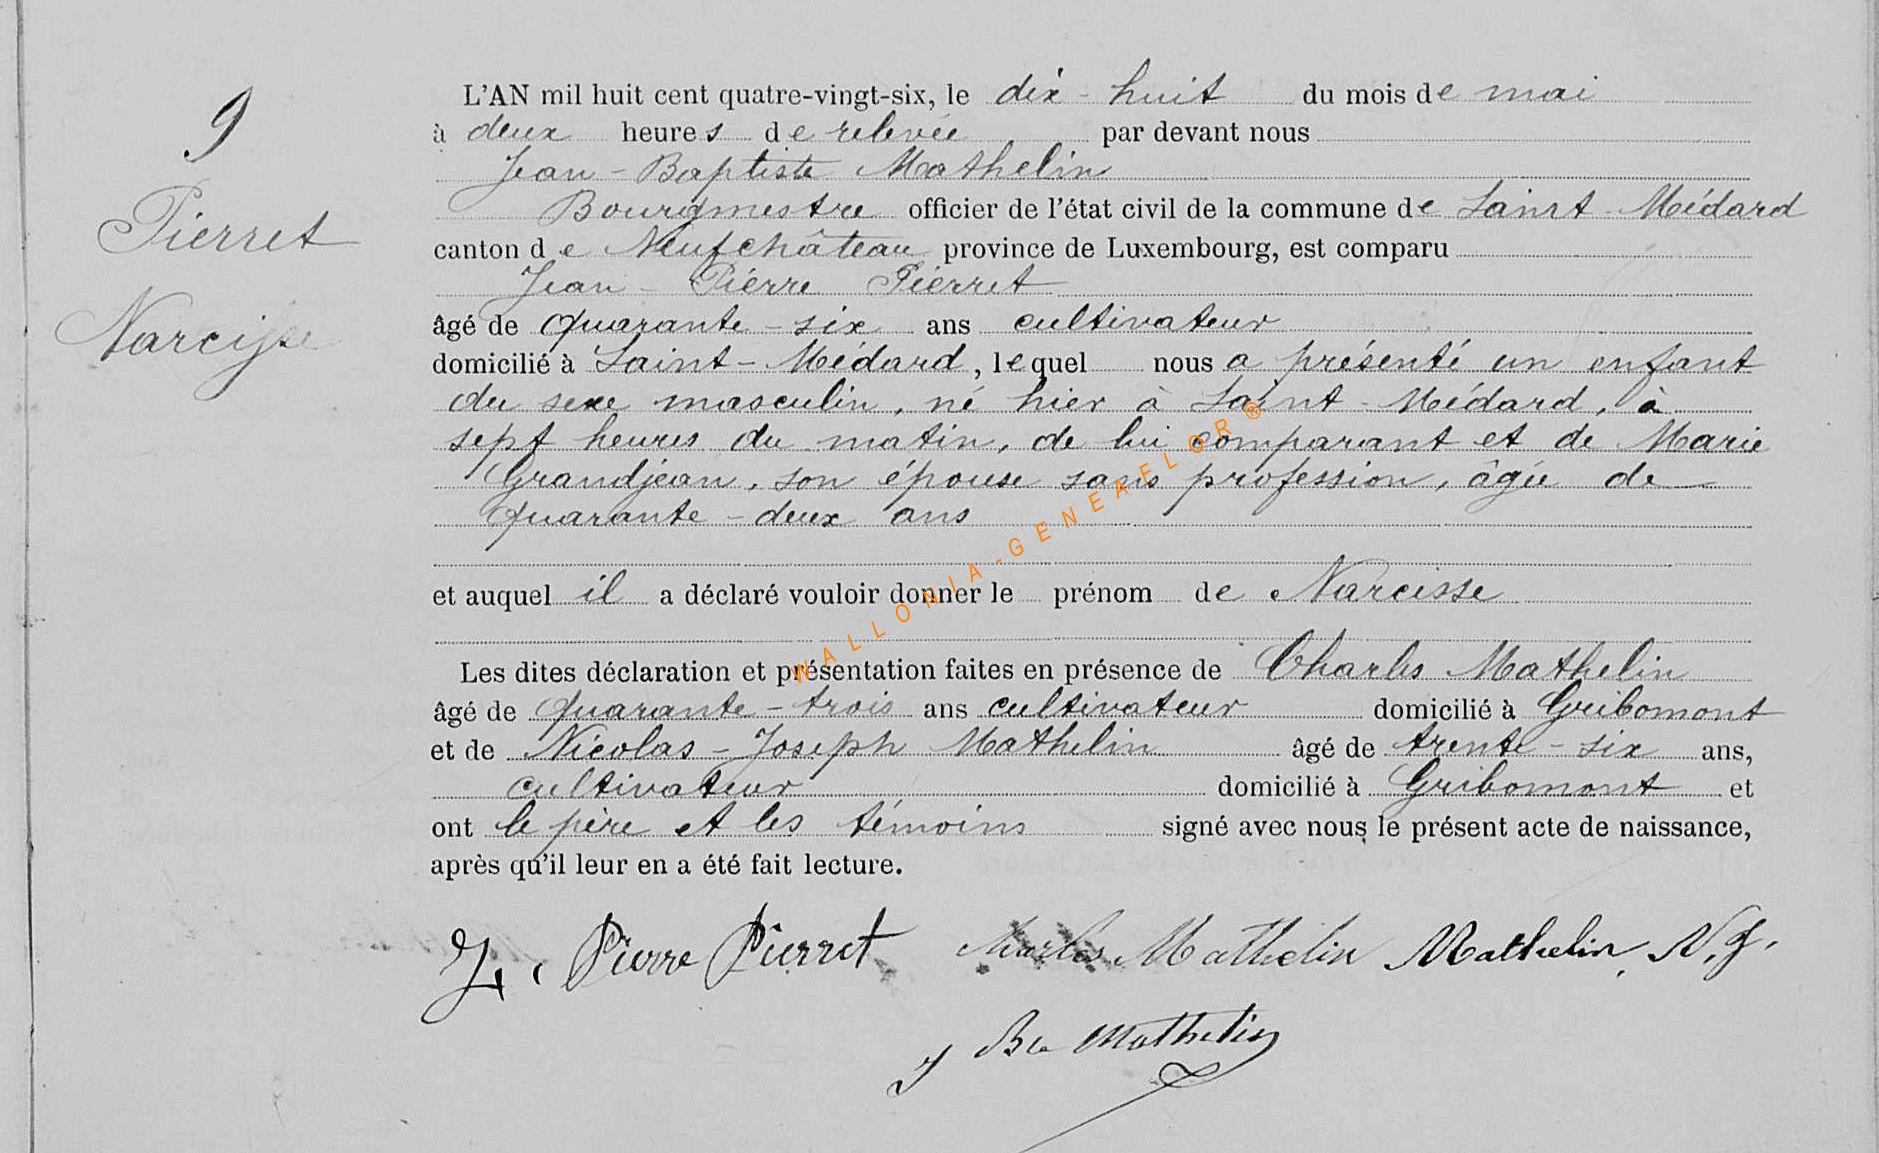 9
Pierret
Narcisse
L'AN mil huit cent quatre-vingt-six, le dix-huit du mois de mai
à deux heures de relevée par devant nous
Jean-Baptiste Mathelin
Bourgmestre officier de l'état civil de la commune de Saint-Médard
canton de Neufchâteau province de Luxembourg, est comparu
Jean-Pierre Pierret
âgé de quarante-six ans cultivateur
domicilié à Saint-Médard, lequel nous a présenté un enfant
du sexe masculin, né hier à Saint-Médard, à
sept heures du matin, de lui comparant et de Marie
Grandjean, son épouse sans profession, âgée de
quarante-deux ans
et auquel il a déclaré vouloir donner le prénom de Narcisse
Les dites déclaration et présentation faites en présence de Charles Mathelin
âgé de quarante-trois ans cultivateur domicilié à Gribomont
et de Nicolas-Joseph Mathelin âgé de trente-six ans,
cultivateur domicilié à Gribomont et
ont le père et les témoins signé avec nous le présent acte de naissance,
après qu'il leur en a été fait lecture.
J. Pierre Pierret Charles Mathelin Mathelin, N.J.
J Bte Mathelin
WALLONIA-GENEAELGR®